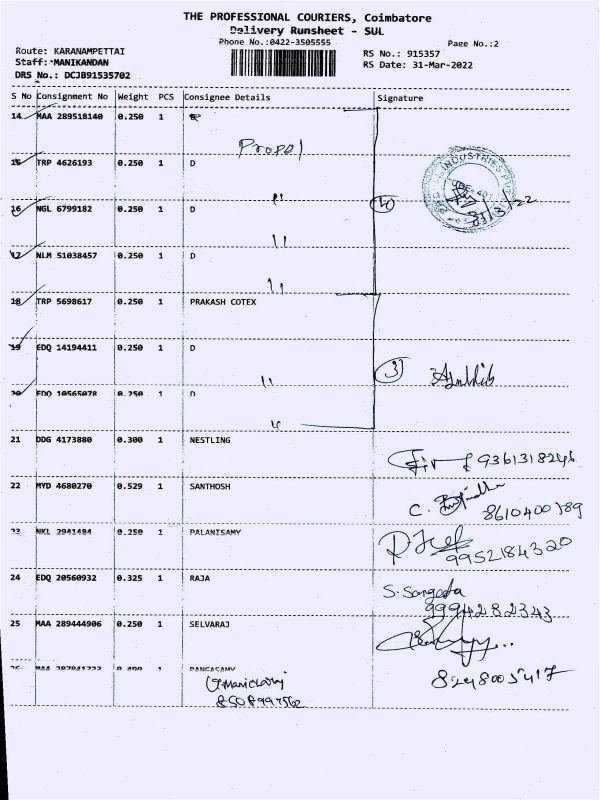 THE PROFESSIONAL COURIERS, Coimbatore
Delivery Runsheet - SUL
Phone No.:0422-3505555
Page No.:2
Route: KARANAMPETTAI
RS No.: 915357
Staff: MANIKANDAN
RS Date: 31-Mar-2022
DRS No.: DCJB91535702
S No Consignment No Weight PCS Consignee Details Signature
14 MAA 289518140 0.250 1
Propel
15 TRP 4626193 0.250 1 D
INDUSTRIES
"
16 NGL 6799182 0.250 1 D
4
31/3/22
"
17 NLM 51038457 0.250 1 D
"
18 TRP 5698617 0.250 1 PRAKASH COTEX
19 EDQ 14194411 0.250 1 D
3
"
20 EDQ 10565078 0.250 1 D
"
21 DDG 4173880 0.300 1 NESTLING
9361318246
22 MYD 4680270 0.529 1 SANTHOSH
C.
8610400189
23 NKL 2941484 0.250 1 PALANISAMY
9952184320
24 EDQ 20560932 0.325 1 RAJA
S. Sangeeta
9994282343
25 MAA 289444906 0.250 1 SELVARAJ
26 MAA 287841723 0.400 1 RANGASAMY
8248005417
8508997562